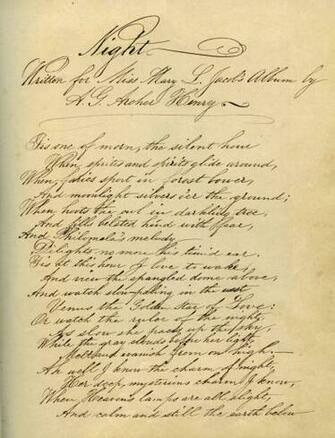 Night
Written for Miss Mary L. Jacobs Album by
A. G. Archer Henry
'Tis one of morn, the silent hour
When sprites and spirits glide around,
When fairies sport in forest bower,
And moonlight silvers o'er the ground;
When hoots the owl in darkling tree
And fills belated hind with fear,
And Philomela's melody
Delights no more his timid ear.
'Tis at this hour I love to wake,
And view the spangled dome above,
And watch slow-fading in the west
Venus the Golden Star of Love:
Or watch the ruler of the night,
As slow she paces up the sky,
While the gray clouds before her light
Melt and vanish from on high.
Ah well I know the charm of night,
Her deep, mysterious charm I know,
When Heaven's lamps are all alight,
And calm and still the earth below